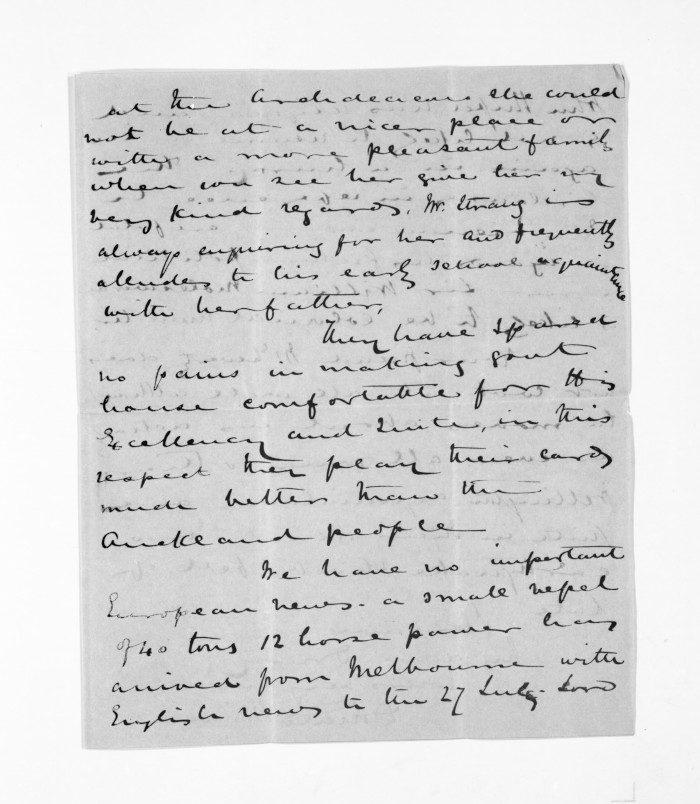 at the Archdeacons she could
not be at a nicer place or
with a more pleasant family
when you see her give her my
very kind regards. Mr. Strang is
always enquiring for her and frequently
alludes to his early school acquaintance
with her father.
They have spared
no pains in making govt
house comfortable for His
Excellency and Suite, in this
respect they play their cards
much better than the
Auckland people
We have no important
European news - a small vessel
of 40 tons 12 horse power has
arrived from Melbourne with
English news to the 27 July. Lord